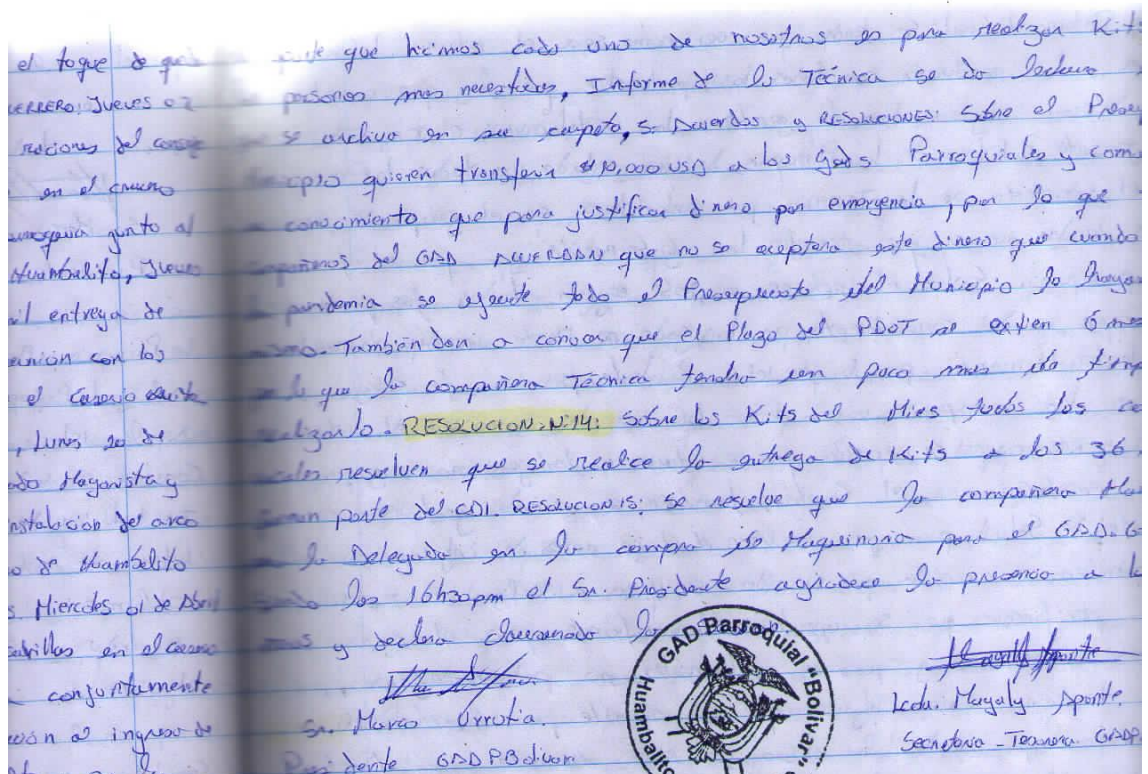 el toque de
Jueves 02
raciones del
en el
junto al
Huambalito, Jueves
entrega de
reunión con los
el Caserio
, Lunes 20 de
Mayorista y
instalación del arco
de Huambalito
Miercoles 01 de Abril
en el
conjuntamente
al ingreso de
que hicimos cada uno de nosotros es para realizar Kits
personas mas necesitadas, Informe de la Técnica se da lectura
se archiva en su carpeta, 5. Acuerdos y RESOLUCIONES: Sobre el
quieren transferir $10,000 USD a los Gads Parroquiales y
conocimiento que para justificar dinero por emergencia, por lo que
del GAD ACUERDAN que no se aceptara este dinero que cuando
pandemia se ejecute todo el Presupuesto del Municipio lo
También dan a conocer que el Plazo del PDOT se extien 6
lo que la compañera Técnica tendra un poco mas de
RESOLUCION: N:14: Sobre los Kits del Mies todos los
resuelven que se realice la entrega de Kits a los 36
parte del CDI. RESOLUCION 15: Se resuelve que la compañera
la Delegada en la compra de Maquinaria para el GAD.
las 16h30pm el Sr. Presidente agradece la presencia a
y declara clausurada la
GAD Parroquial "Bolívar"
Huambalito
Sr. Marco Urrutia.
Presidente GADPBolivar
Lcda. Magaly Aponte.
Secretaria - Tesorera GADP